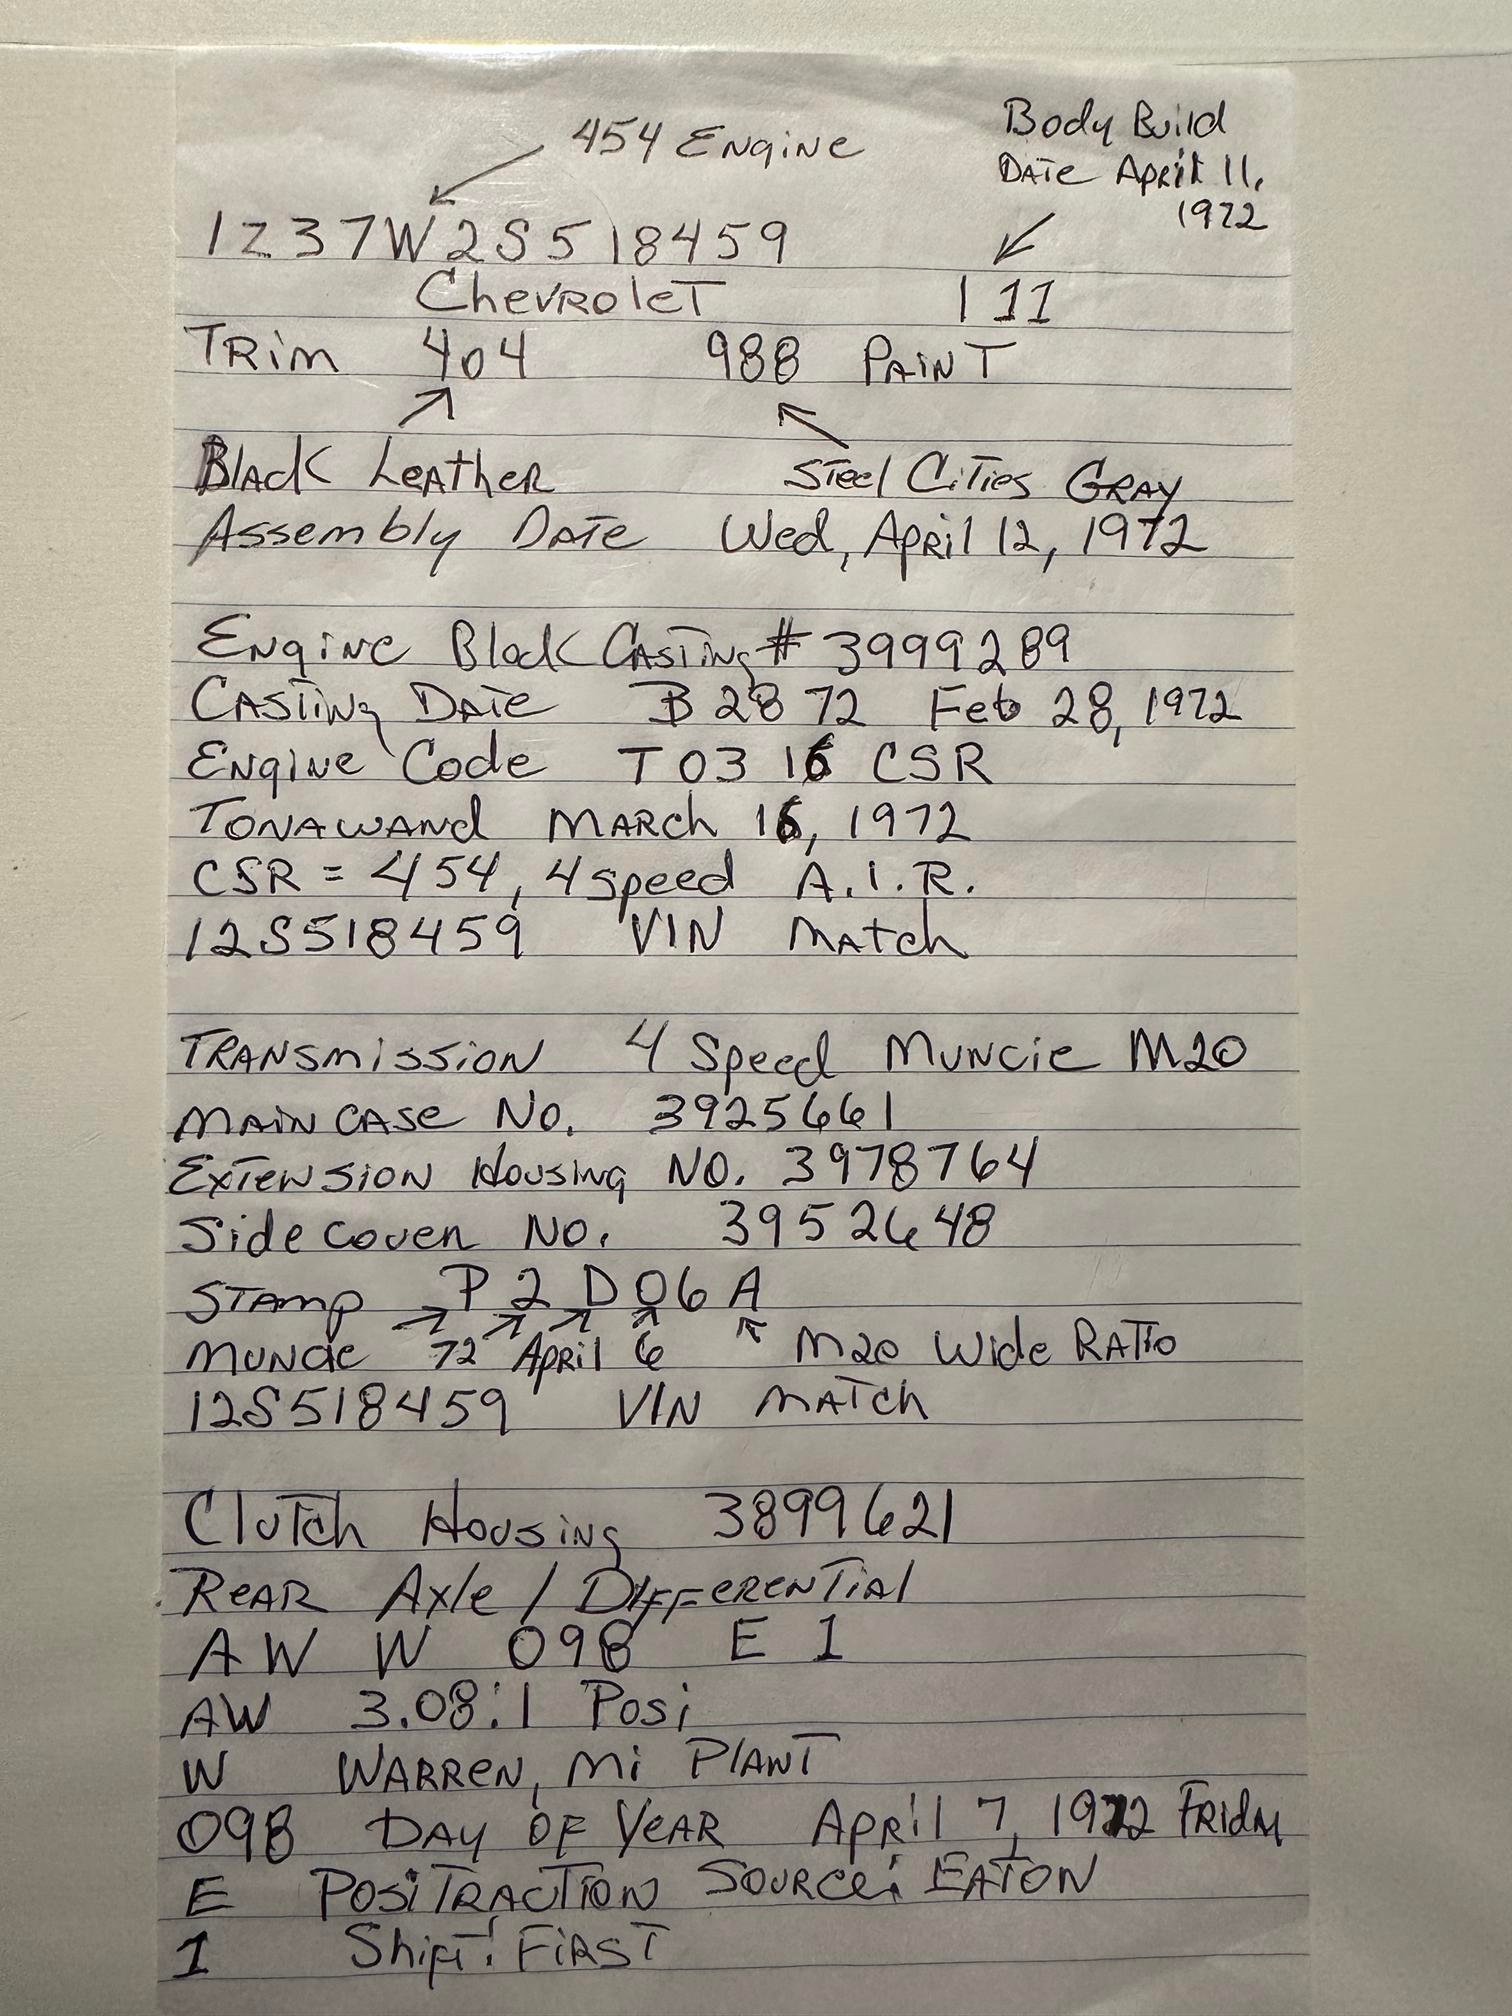 454 Engine
Body Build
Date April 11,
1972
1Z37W2S518459
Chevrolet I 11
Trim 404 988 Paint
Black Leather Steel Cities Gray
Assembly Date Wed, April 12, 1972
Engine Block Casting # 3999289
Casting Date B 28 72 Feb 28, 1972
Engine Code T 03 16 CSR
Tonawand March 16, 1972
CSR = 454, 4 speed A.I.R.
12S518459 VIN Match
Transmission 4 Speed Muncie M20
Main Case No. 3925661
Extension Housing No. 3978764
Side Cover No. 3952648
Stamp P 2 D 06 A
Muncie 72 April 6 M20 Wide Ratio
12S518459 VIN Match
Clutch Housing 3899621
Rear Axle / Differential
AW W 098 E 1
AW 3.08:1 Posi
W Warren, Mi Plant
098 Day of Year April 7, 1972 Friday
E Positraction Source: Eaton
1 Shift: First